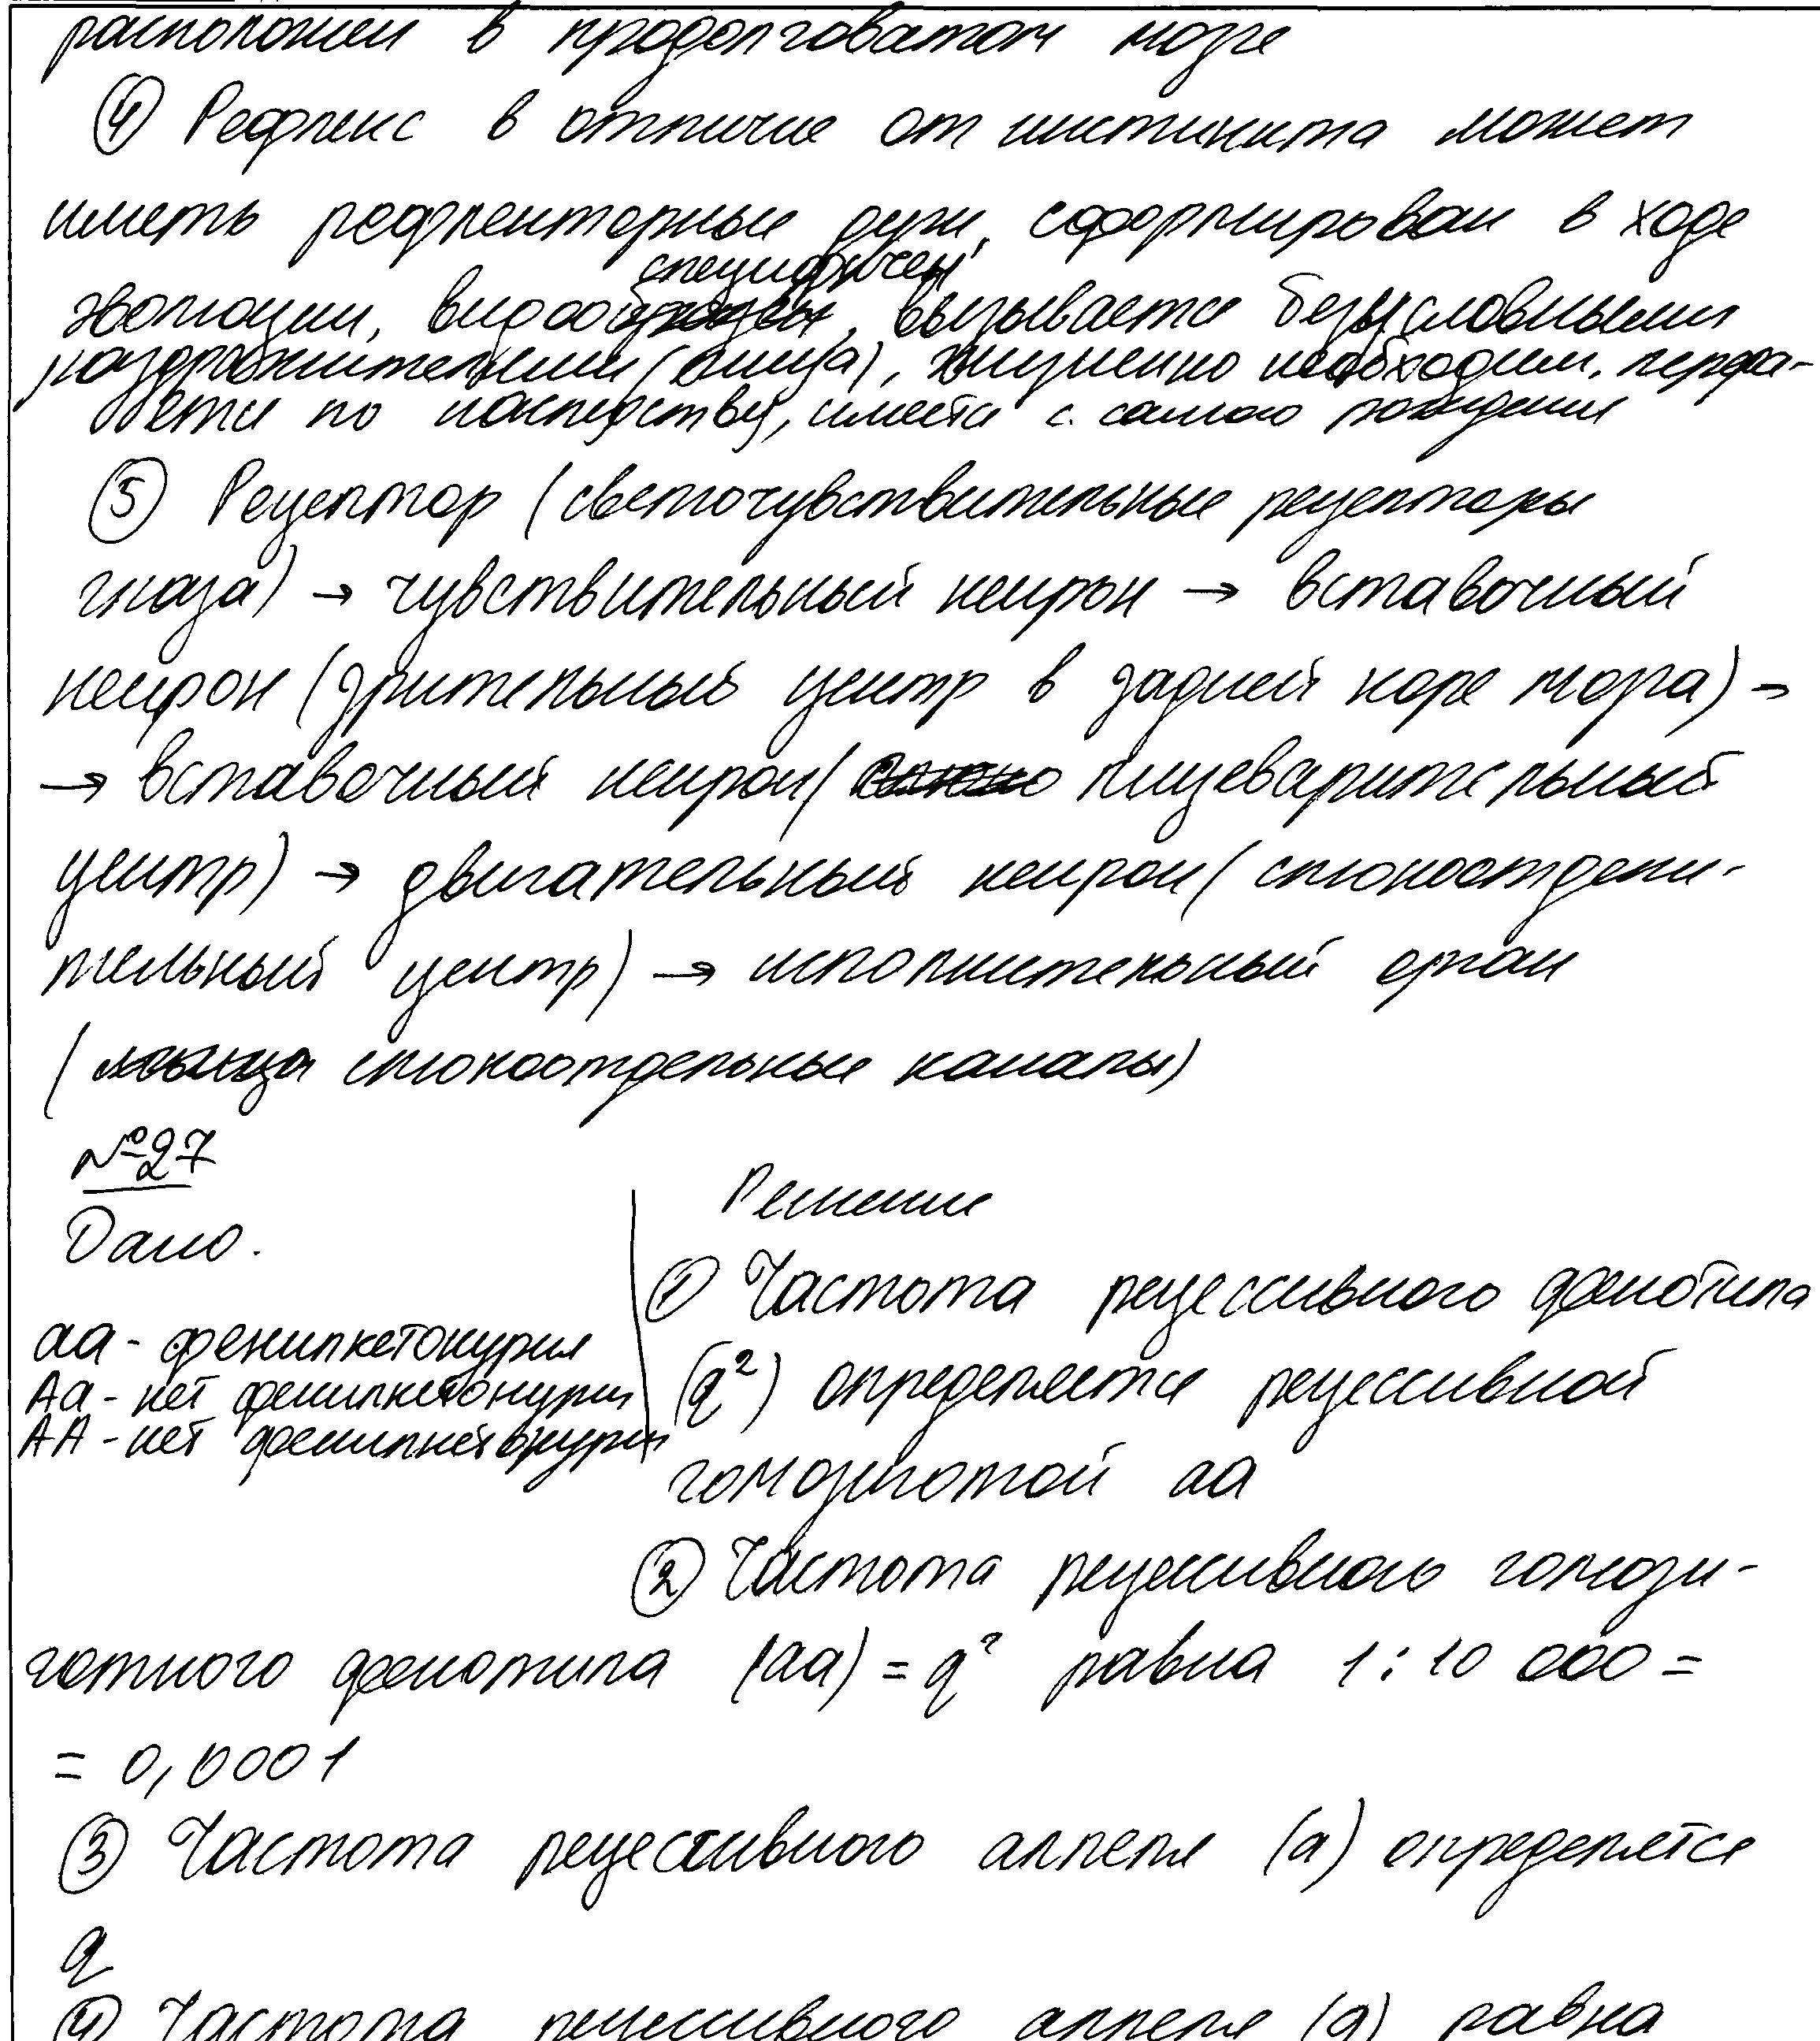 расположен в продолговатом мозге
④ Рефлекс в отличие от инстинкта может
иметь рефлекторные дуги, сформирован в ходе
специфичен
эволюции, видо, вызывается безусловными
раздражителями (пища), жизненно необходим, переда-
ётся по наследству, имеется с самого рождения
⑤ Рецептор (светочувствительные рецепторы
глаза) → чувствительный нейрон → вставочный
нейрон (зрительный центр в задней коре мозга) →
→ вставочный нейрон (пищеварительный
центр) → двигательный нейрон (слюноотдели-
тельный центр) → исполнительный орган
(слюноотдельные каналы)
№27
Дано.
аа - фенилкетонурия
Аа - нет фенилкетонурии
АА - нет фенилкетонурии
Решение
① Частота рецессивного фенотипа
(q²) определяется рецессивной
гомозиготой аа
② Частота рецессивного гомози-
готного фенотипа (аа) = q² равна 1:10 000 =
= 0,0001
③ Частота рецессивного аллеля (а) определяется
q
④ Частота рецессивного аллеля (а) равна